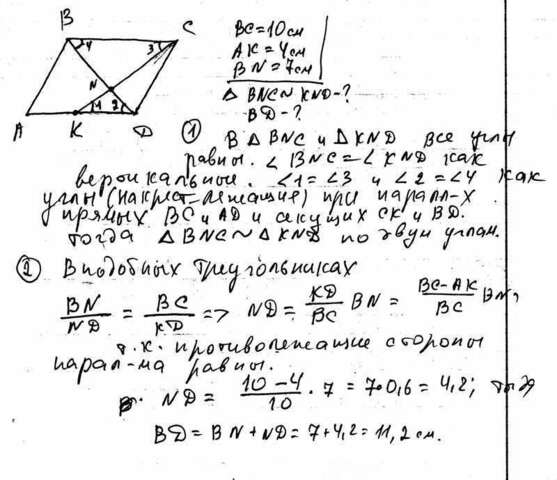 B C
4 3
N
1 2
A K D
BC = 10 см
AK = 4 см
BN = 7 см
Δ BNC ~ KND - ?
BD - ?
① В Δ BNC и Δ KND все углы
равны. ∠ BNC = ∠ KND как
вертикальные. ∠1 = ∠3 и ∠2 = ∠4 как
углы (накрест лежащие) при паралл-х
прямых BC и AD и секущих CK и BD.
Тогда Δ BNC ~ Δ KND по двум углам.
② В подобных треугольниках
BN/ND = BC/KD => ND = KD/BC BN = BC-AK/BC BN,
т.к. противолежащие стороны
парал-ма равны.
ND = 10-4/10 · 7 = 7·0,6 = 4,2; тогда
BD = BN + ND = 7 + 4,2 = 11,2 см.